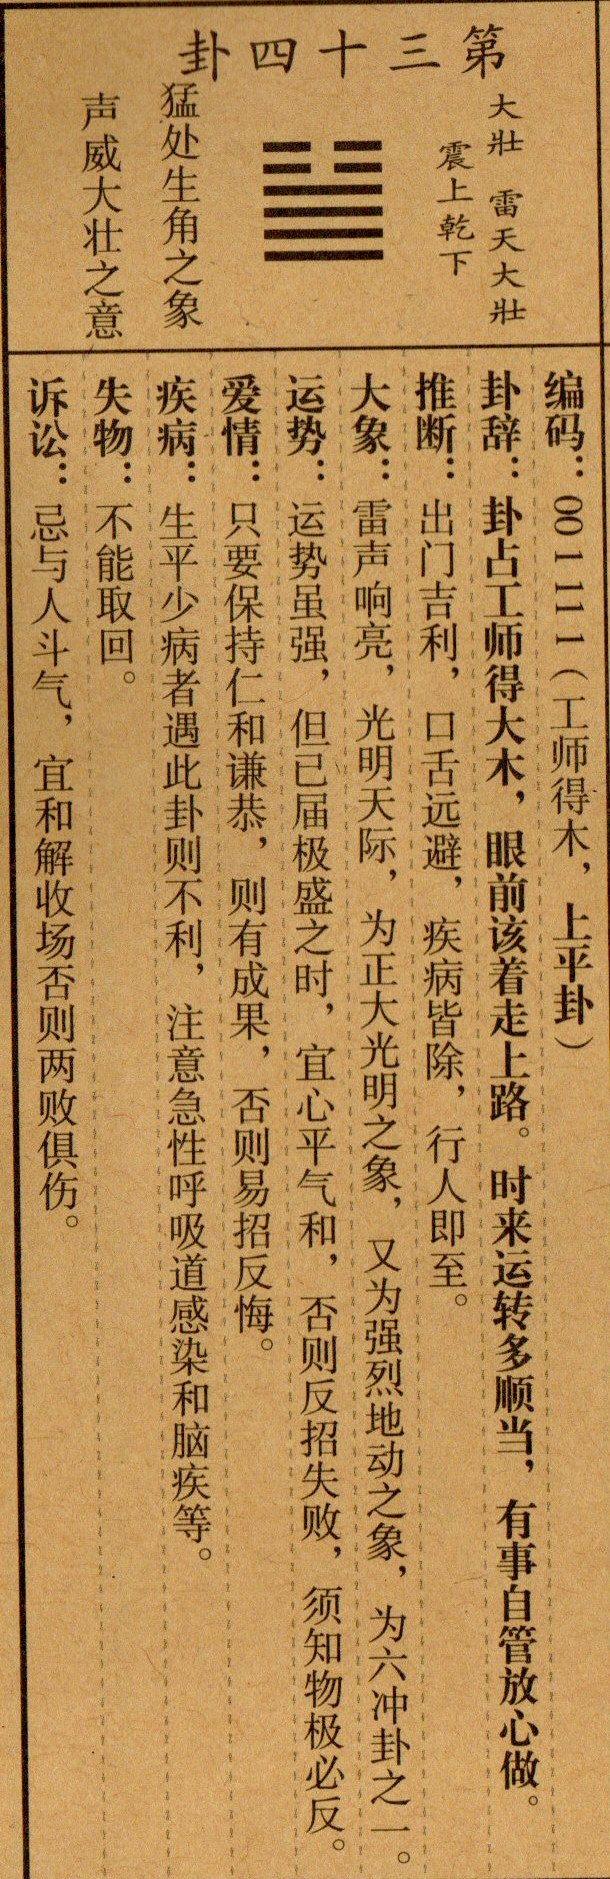 第三十四卦
大壯 雷天大壯
震上乾下
猛处生角之象
声威大壮之意
编码：001111（工师得木，上平卦）
卦辞：卦占工师得大木，眼前该着走上路。时来运转多顺当，有事自管放心做。
推断：出门吉利，口舌远避，疾病皆除，行人即至。
大象：雷声响亮，光明天际，为正大光明之象，又为强烈地动之象，为六冲卦之一。
运势：运势虽强，但已届极盛之时，宜心平气和，否则反招失败，须知物极必反。
爱情：只要保持仁和谦恭，则有成果，否则易招反悔。
疾病：生平少病者遇此卦则不利，注意急性呼吸道感染和脑疾等。
失物：不能取回。
诉讼：忌与人斗气，宜和解收场否则两败俱伤。